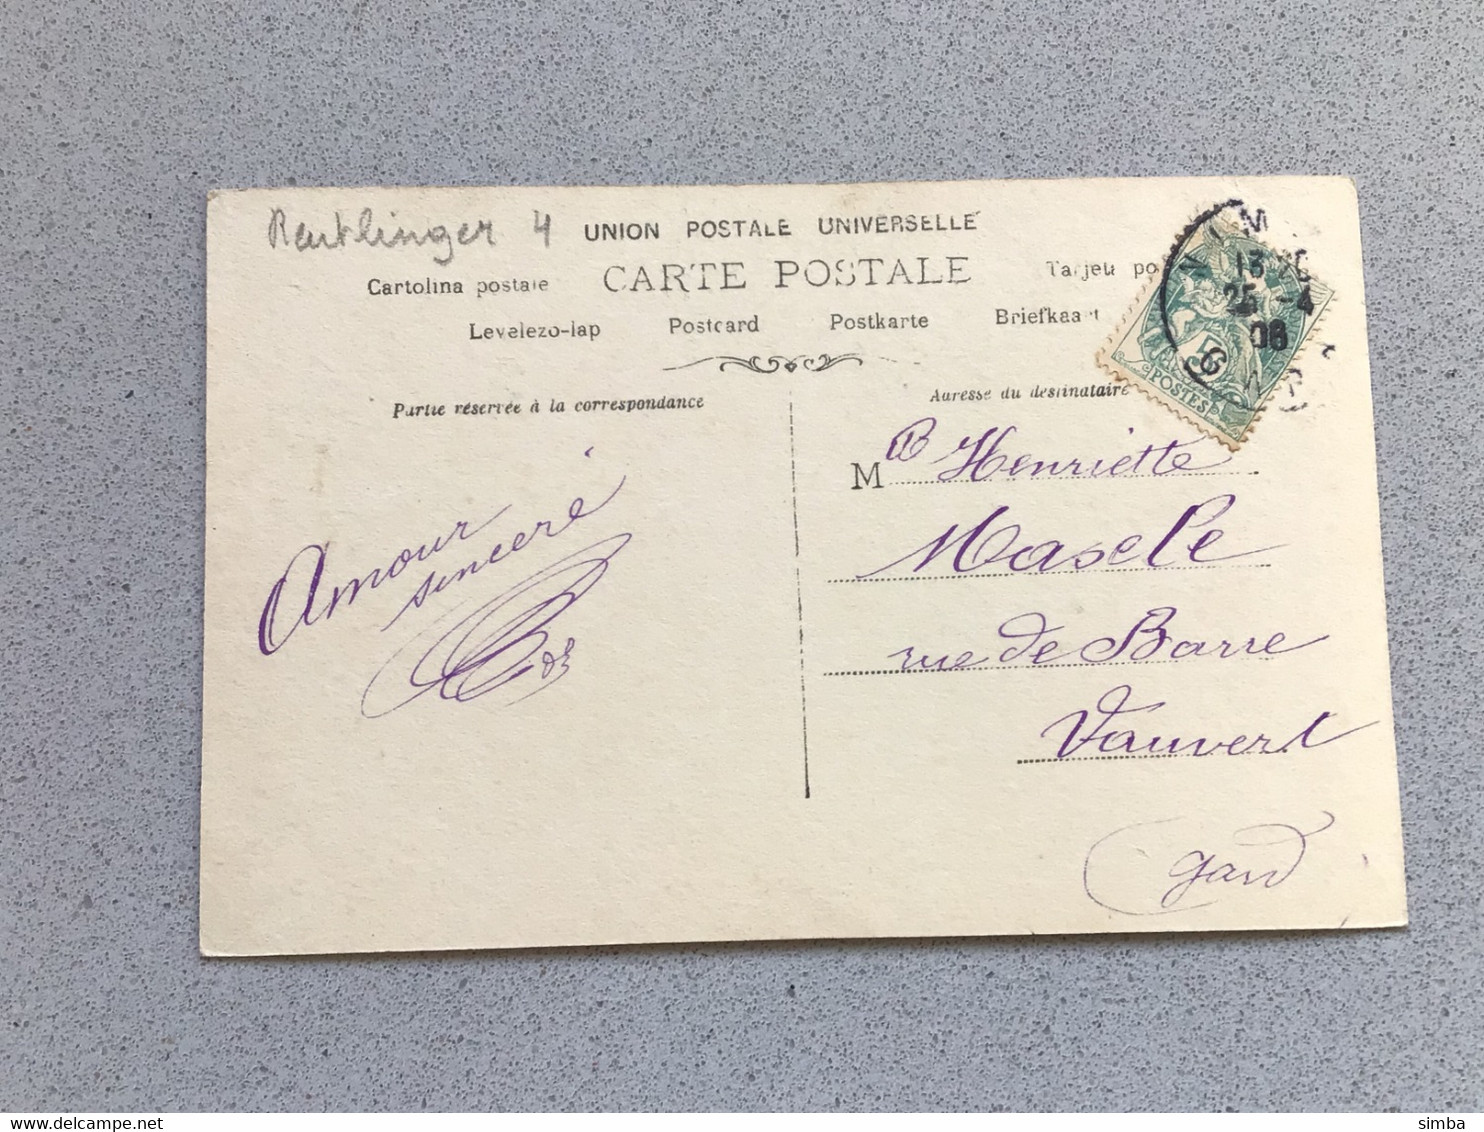 Reutlinger 4
UNION POSTALE UNIVERSELLE
Cartolina postale CARTE POSTALE Tarjeta po
Levelezo-lap Postcard Postkarte Briefkaart
Partie réservée à la correspondance
Adresse du destinataire
Amour
sincère
M Henriette
Masele
rue de Barre
Vauvert
Gard
NIMES
13
25 -4
08
5c
POSTES
delcampe.net
simba